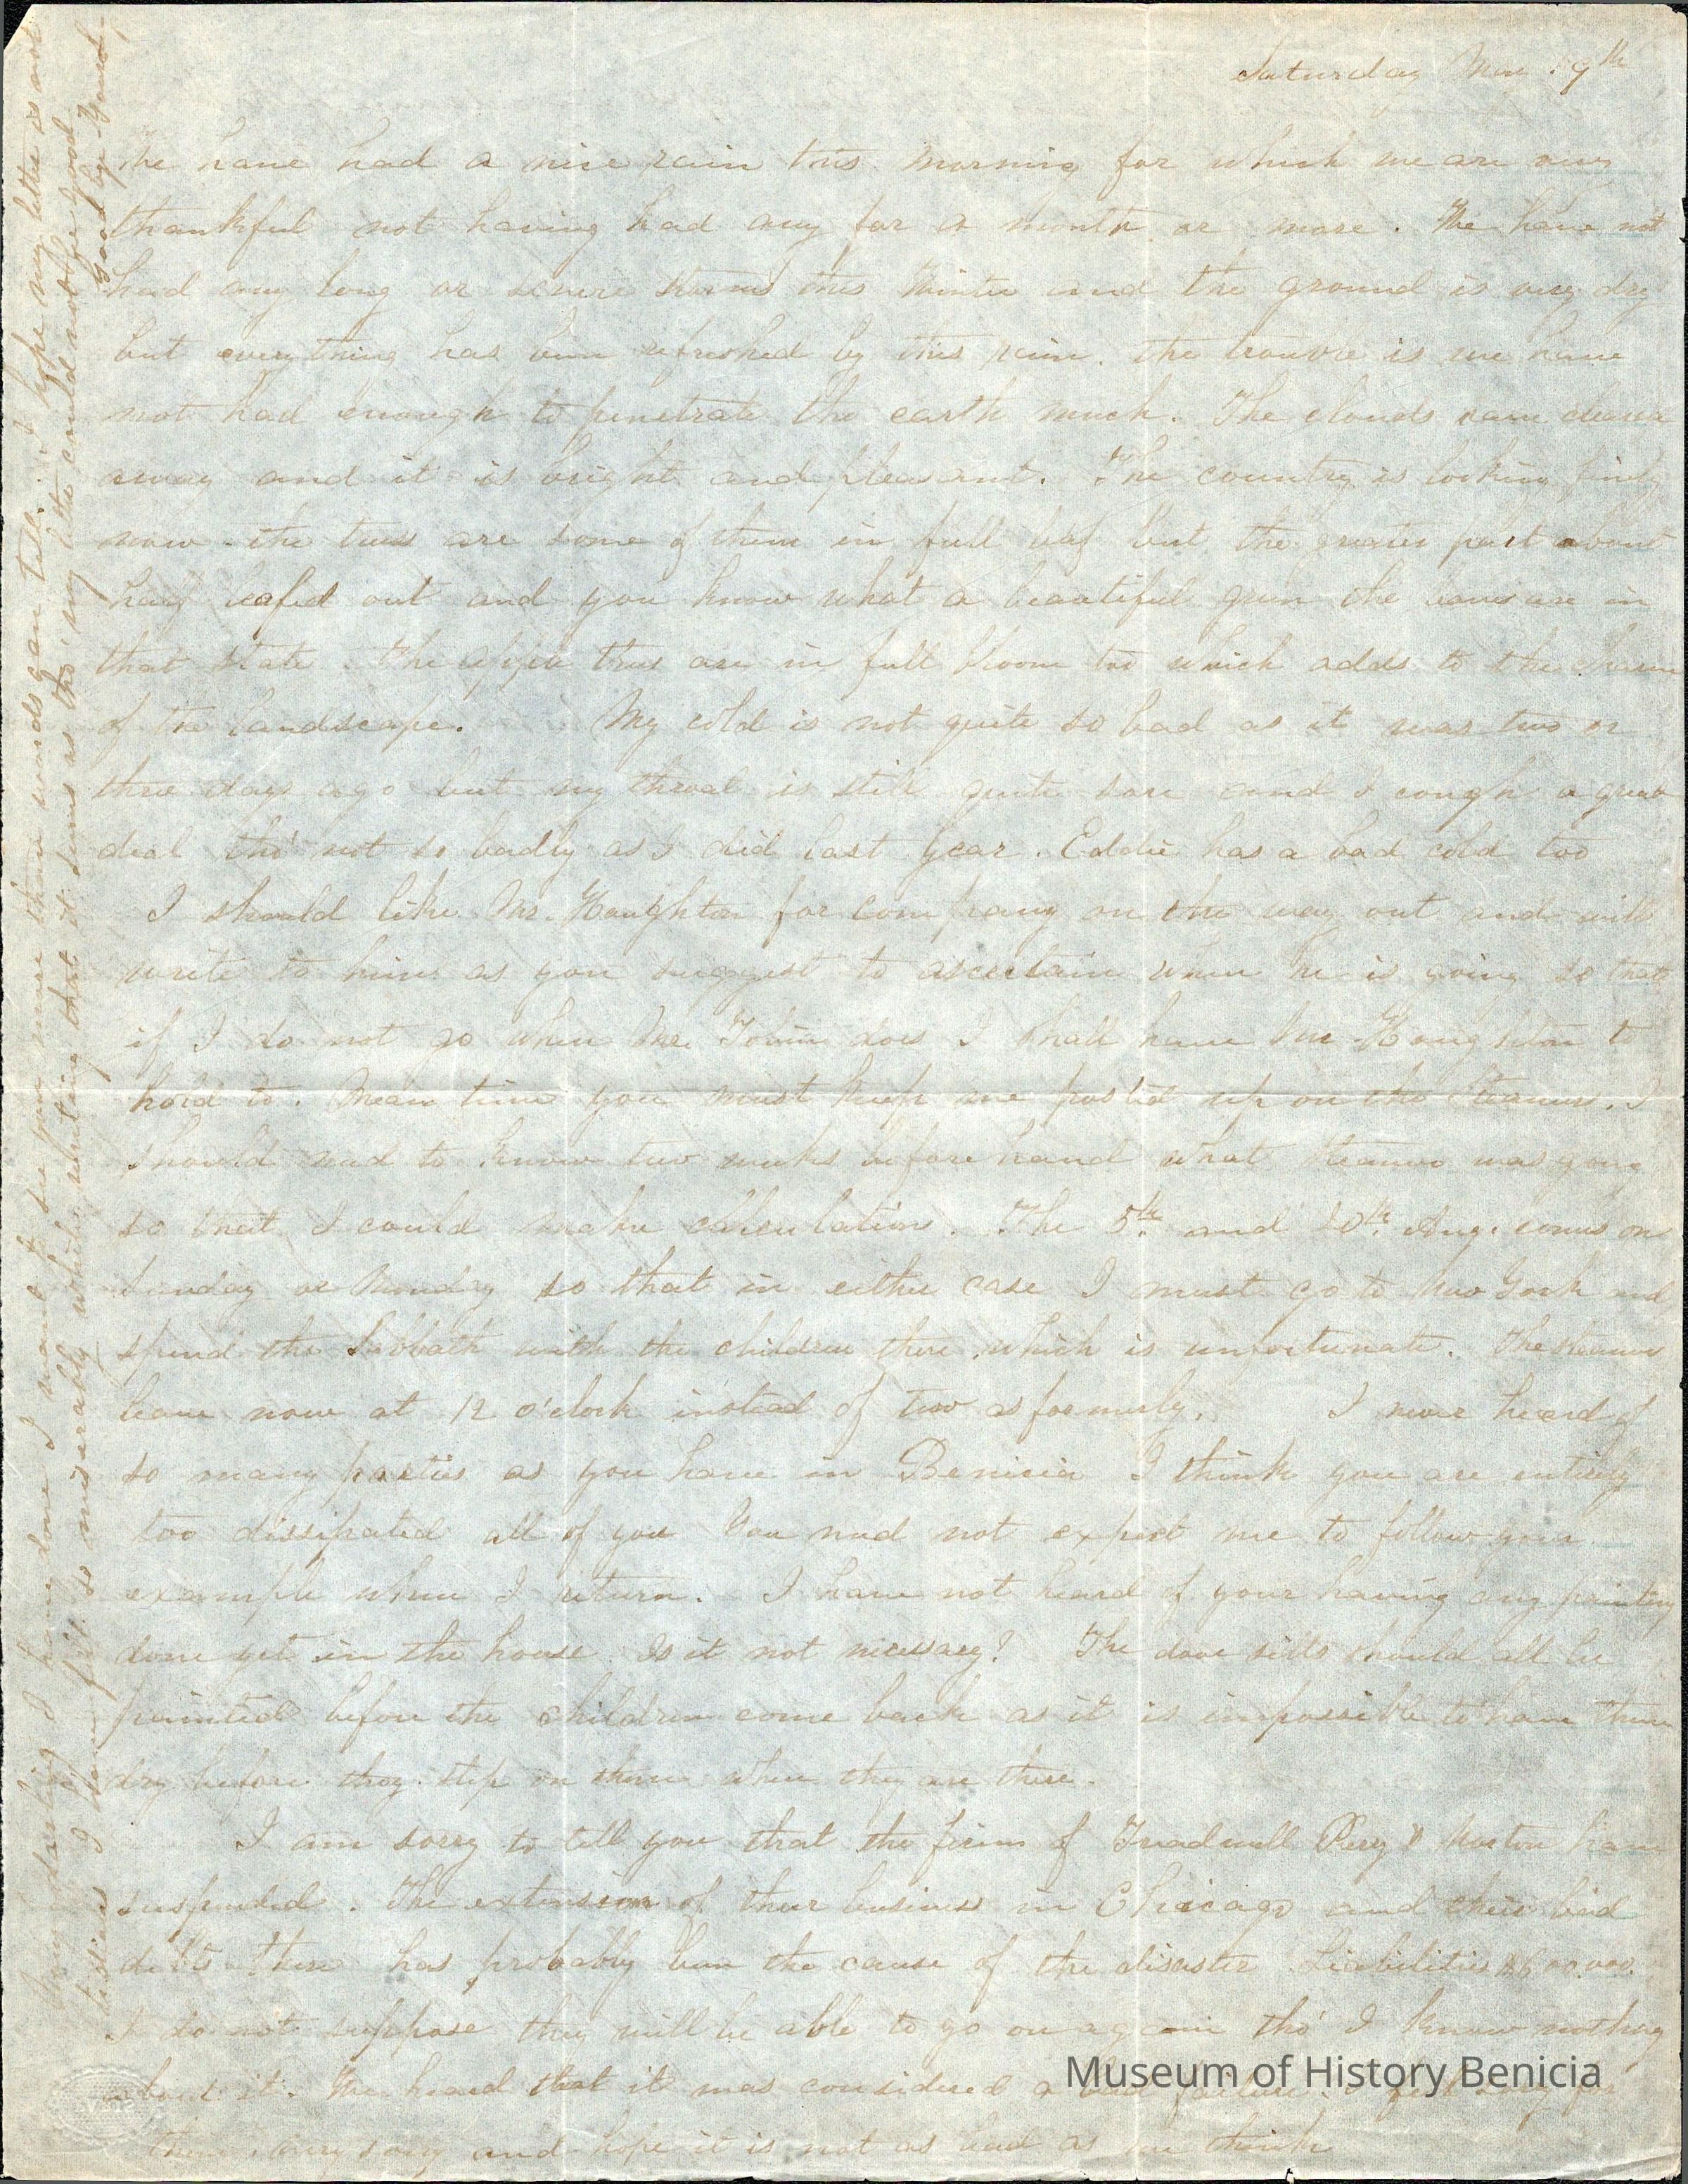 Saturday May 19th
We have had a nice rain this morning for which we are very
thankful not having had any for a month or more. We have not
had any long or severe storms this Winter and the ground is very dry
but every thing has been refreshed by this rain. the trouble is we have
not had enough to penetrate the earth much. The clouds have cleared
away and it is bright and pleasant. The country is looking finely
now - the trees are some of them in full leaf but the greater part about
half leafed out and you know what a beautiful green the leaves are in
that state. The apple trees are in full bloom too which adds to the charm
of the landscape. My cold is not quite so bad as it was two or
three days ago but my throat is still quite sore and I cough a great
deal tho' not so badly as I did last year. Eddie has a bad cold too
I should like Mr. Houghton for company on the way out and will
write to him as you suggest to ascertain when he is going so that
if I do not go when Mr. does I shall have Mr Houghton to
hold to. Mean time you must keep me posted up on the Steamers. I
should need to know two weeks before hand what steamer was going
so that I could make calculations. The 5th and 20th Aug. comes on
Sunday or Monday so that in either case I must go to New York and
spend the Sabbath with the children there, which is unfortunate. The steamers
leave now at 12 o'clock instead of two as formerly. I never heard of
so many parties as you have in Benicia I think you are entirely
too dissipated all of you You need not expect me to follow your
example when I return. I have not heard of your having any painting
done yet in the house. Is it not necessary? The door sills should all be
painted before the children come back as it is impossible to have them
dry before they step on them when they are there.
I am sorry to tell you that the firm of Treadwell Perry & have
suspended. The extension of their business in Chicago and their bad
debts there has probably been the cause of the disaster Liabilities
I do not suppose they will be able to go on again tho' I know nothing
about it. We heard that it was considered a bad failure. I feel for
them, very sorry and hope it is not as bad as we think
My darling I have done I want to see you more than words can tell. I hope my letter is not
tedious I have felt so miserably while writing that it seems as tho' my letter could not be good
Good bye Yours
Museum of History Benicia